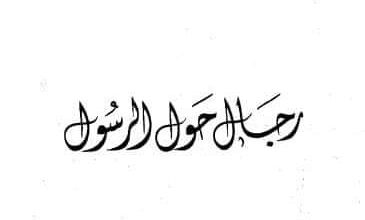 رجَال حَول الرسُول